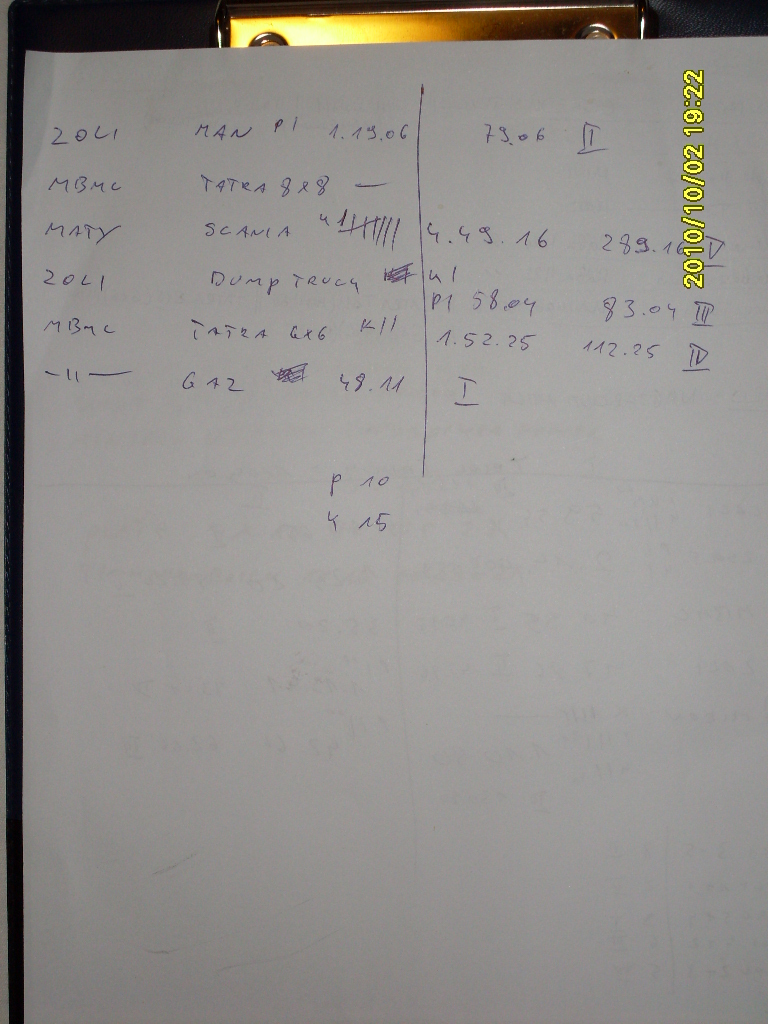 ZOLI MAN P1 1.19.06 79.06 II
MBMC TATRA 8X8 —
MATY SCANIA 4.49.16 289.16 V
ZOLI DUMP TRUCK
P1 58.04 83.04 III
MBMC TATRA 6X6 KII 1.52.25 112.25 IV
—II— GAZ 48.11 I
P 10
K 15
2010/10/02 19:22